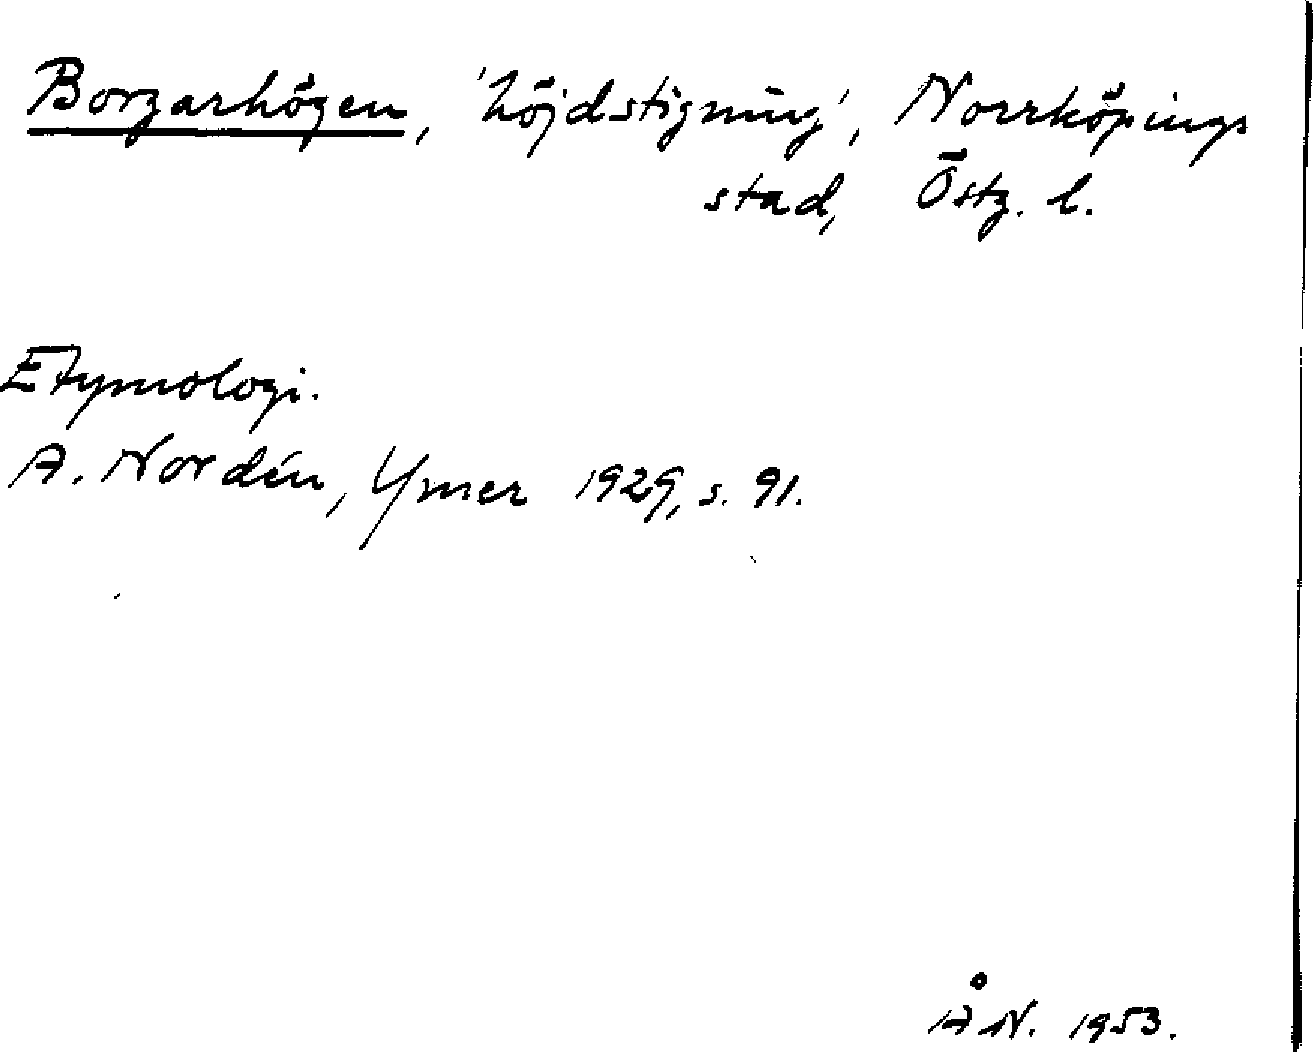 Borgarhögen, 'höjdstigning', Norrköpings
stad, Östg. l.
Etymologi.
A. Nordén, Ymer 1929, s. 91.
ÅN. 1953.